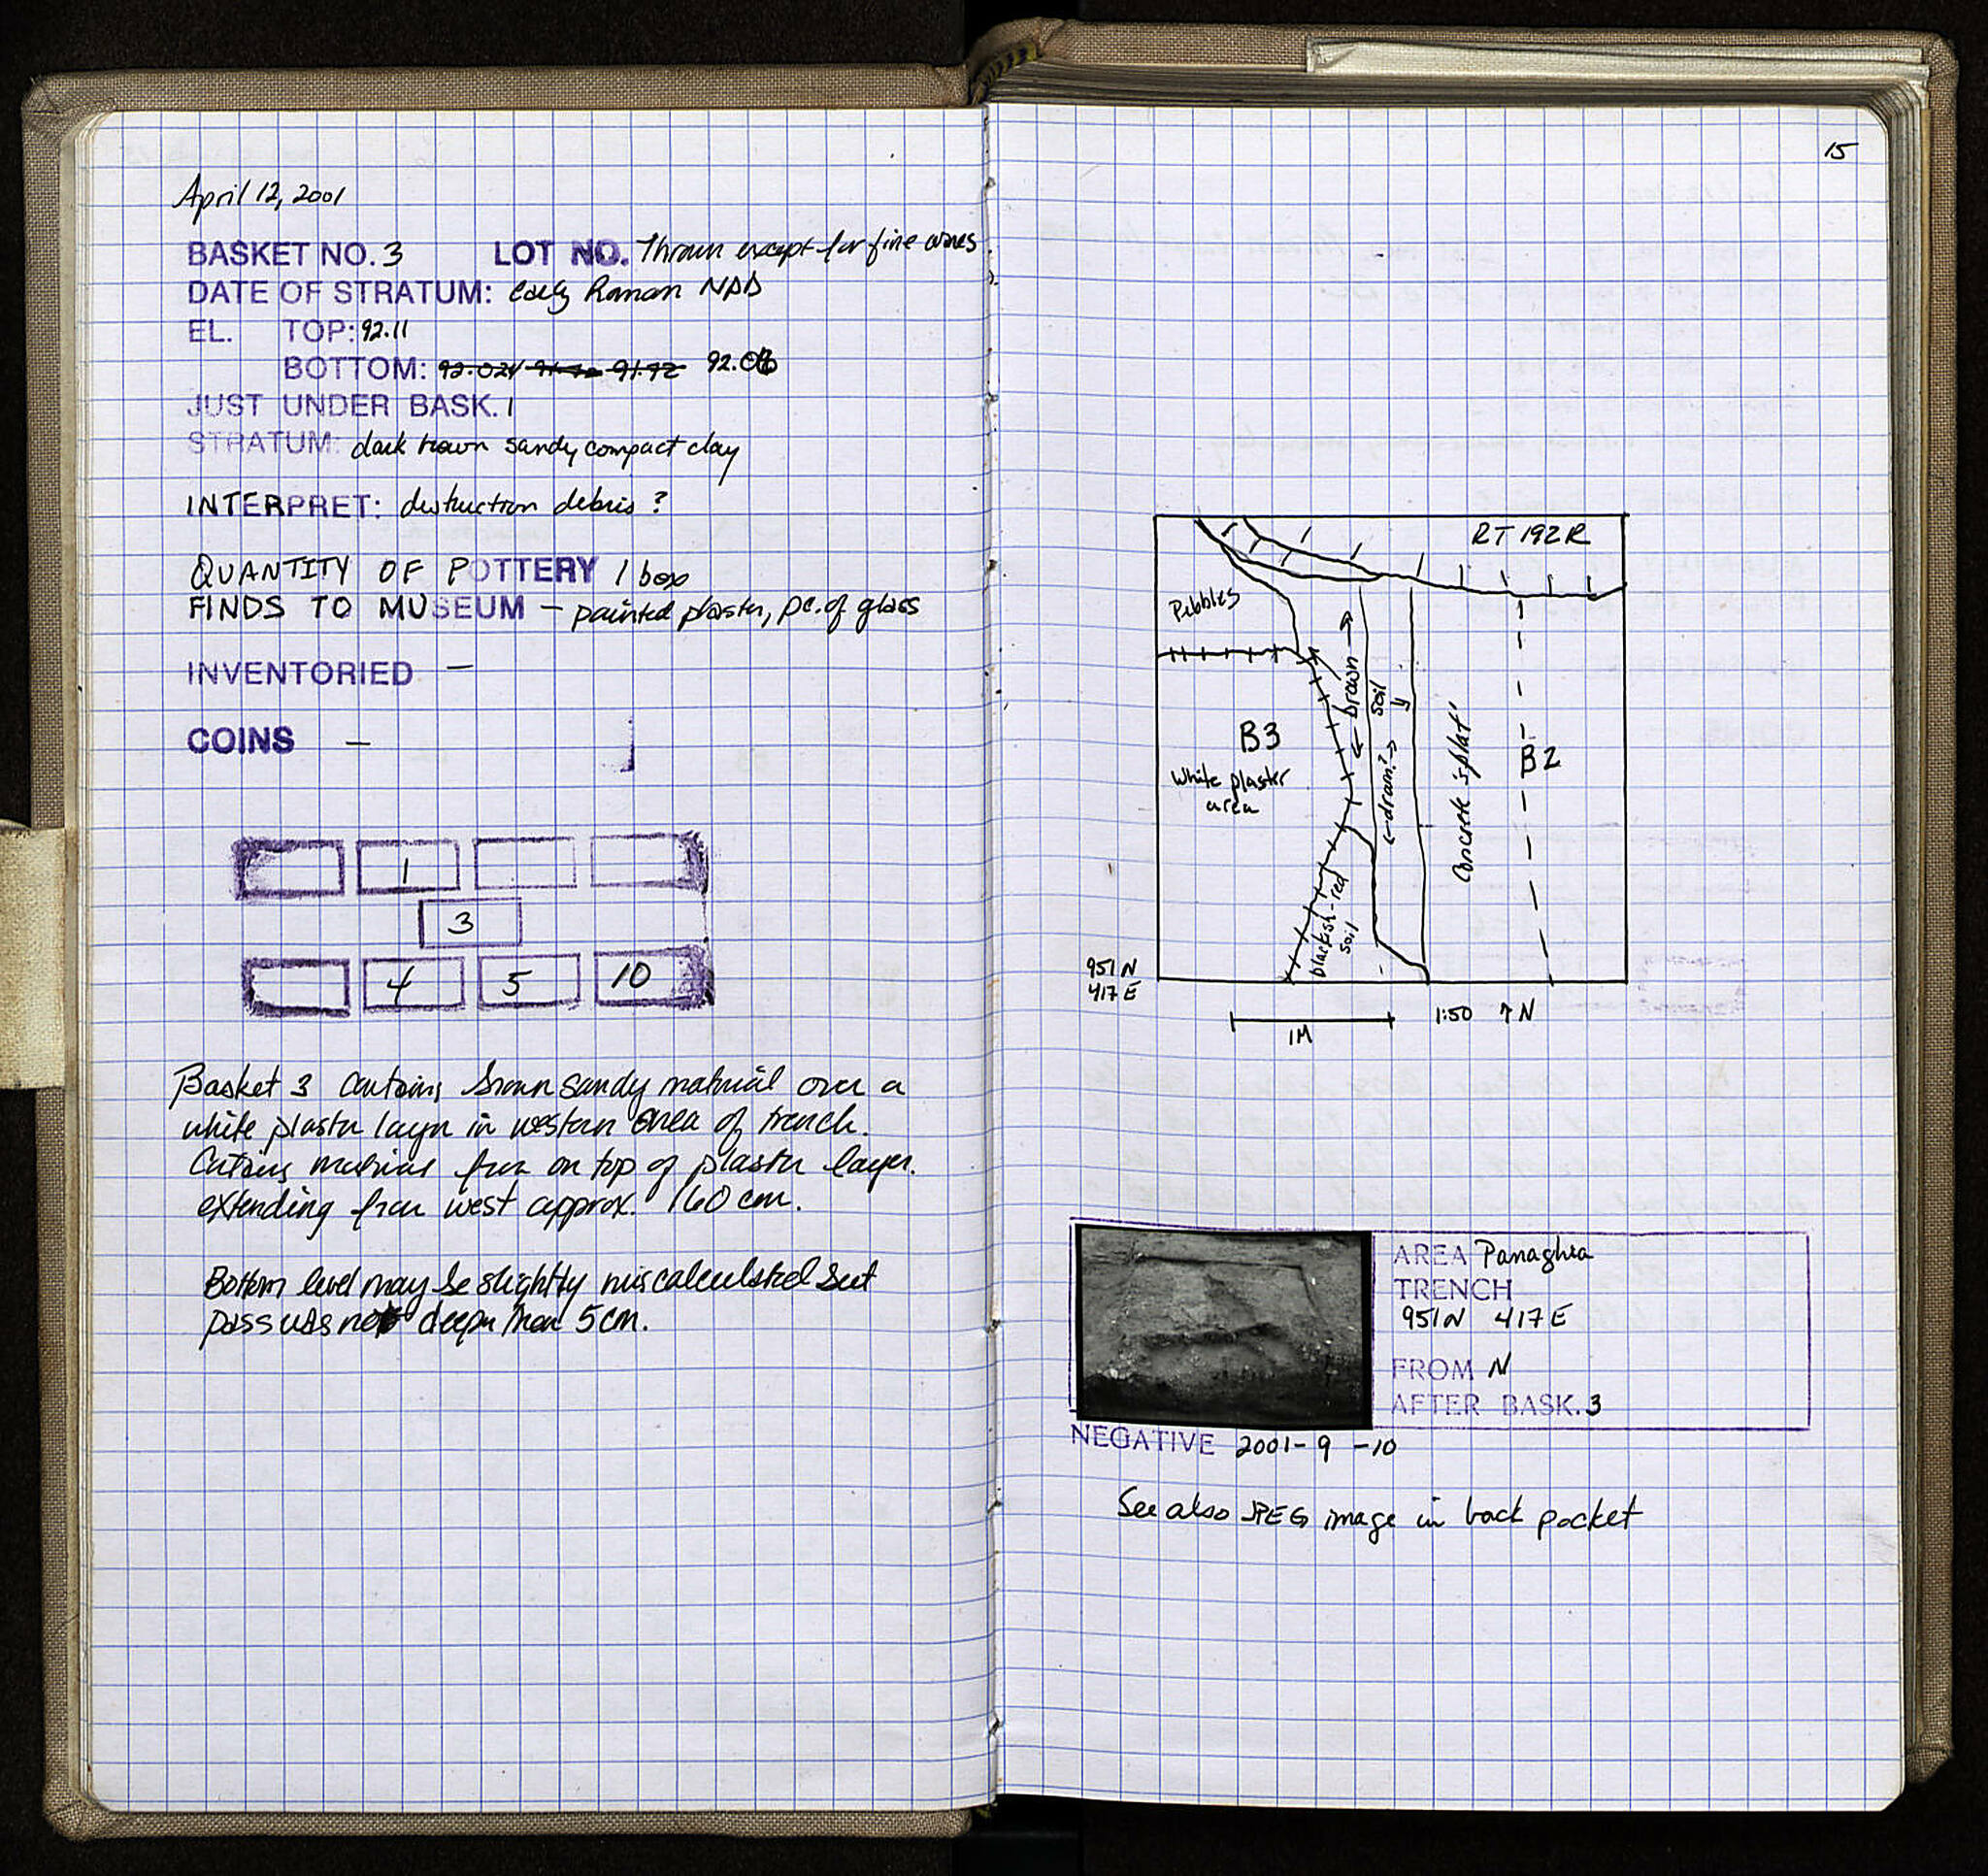 April 12, 2001
BASKET NO. 3 LOT NO. Thrown except for fine wares
DATE OF STRATUM: Early Roman NPD
EL. TOP: 92.11
BOTTOM: 92.024 91.72 92.06
JUST UNDER BASK. 1
STRATUM: dark brown sandy compact clay
INTERPRET: destruction debris?
QUANTITY OF POTTERY 1 box
FINDS TO MUSEUM — painted plaster, pc. of glass
INVENTORIED —
COINS —
1
3
4 5 10
Basket 3 contains brown sandy material over a
white plaster layer in western area of trench.
Contains material from on top of plaster layer.
extending from west approx. 160 cm.
Bottom level may be slightly miscalculated but
pass was not deeper than 5 cm.
15
RT 192 R
Pebbles
← brown →
soil
B3
White plaster
area
← drain? →
Concrete 'splat'
B2
blackish-red
soil
951 N
417 E
1M
1:50 ↑ N
AREA Panaghia
TRENCH
951 N 417 E
FROM N
AFTER BASK. 3
NEGATIVE 2001-9-10
See also JPEG image in back pocket